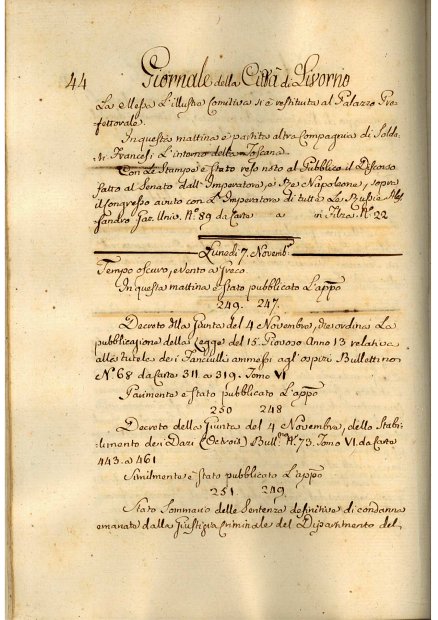 44 Giornale della Città di Livorno
La Messa L'illustre Comitiva si è restituta al Palazzo Pre
fettorale.
In questa mattina è partita altra Compagnia di Solda
ti Francesi L'interno della Toscana.
Con Le Stampe è Stato reso noto al Pubblico il Discorso
fatto al Senato dall'Imperatore, e Re Napoleone, sopra
il Congresso avuto con L'Imperatore di tutte Le Russie Ales
sandro Gaz. Univ. N.º 89 da Carte a in Filza N.º 22
Lunedì 7. Novembre
Tempo oscuro, e vento a Greco.
In questa mattina è stato pubblicato L'appo
249. 247.
Decreto della Giunta del 4 Novembre, che ordina La
pubblicazione della Legge del 15. Piovoso Anno 13 relativa
alla tutela dei Fanciulli ammessi agl'ospizi Bullettino
N.º 68 da Carte 311. a 319. Tomo VI
Parimente è stato pubblicato L'appo
250 248
Decreto della Giunta del 4 Novembre, dello Stabi-
limento dei Dazi (Detrois) Bull.no N.º 73. Tomo VI. da Carte
443. a 461
Similmente è stato pubblicato L'appo
251. 249.
Stato Sommario delle Sentenze definitive di condanna
emanate dalla Giustizia Criminale del Dipartimento del